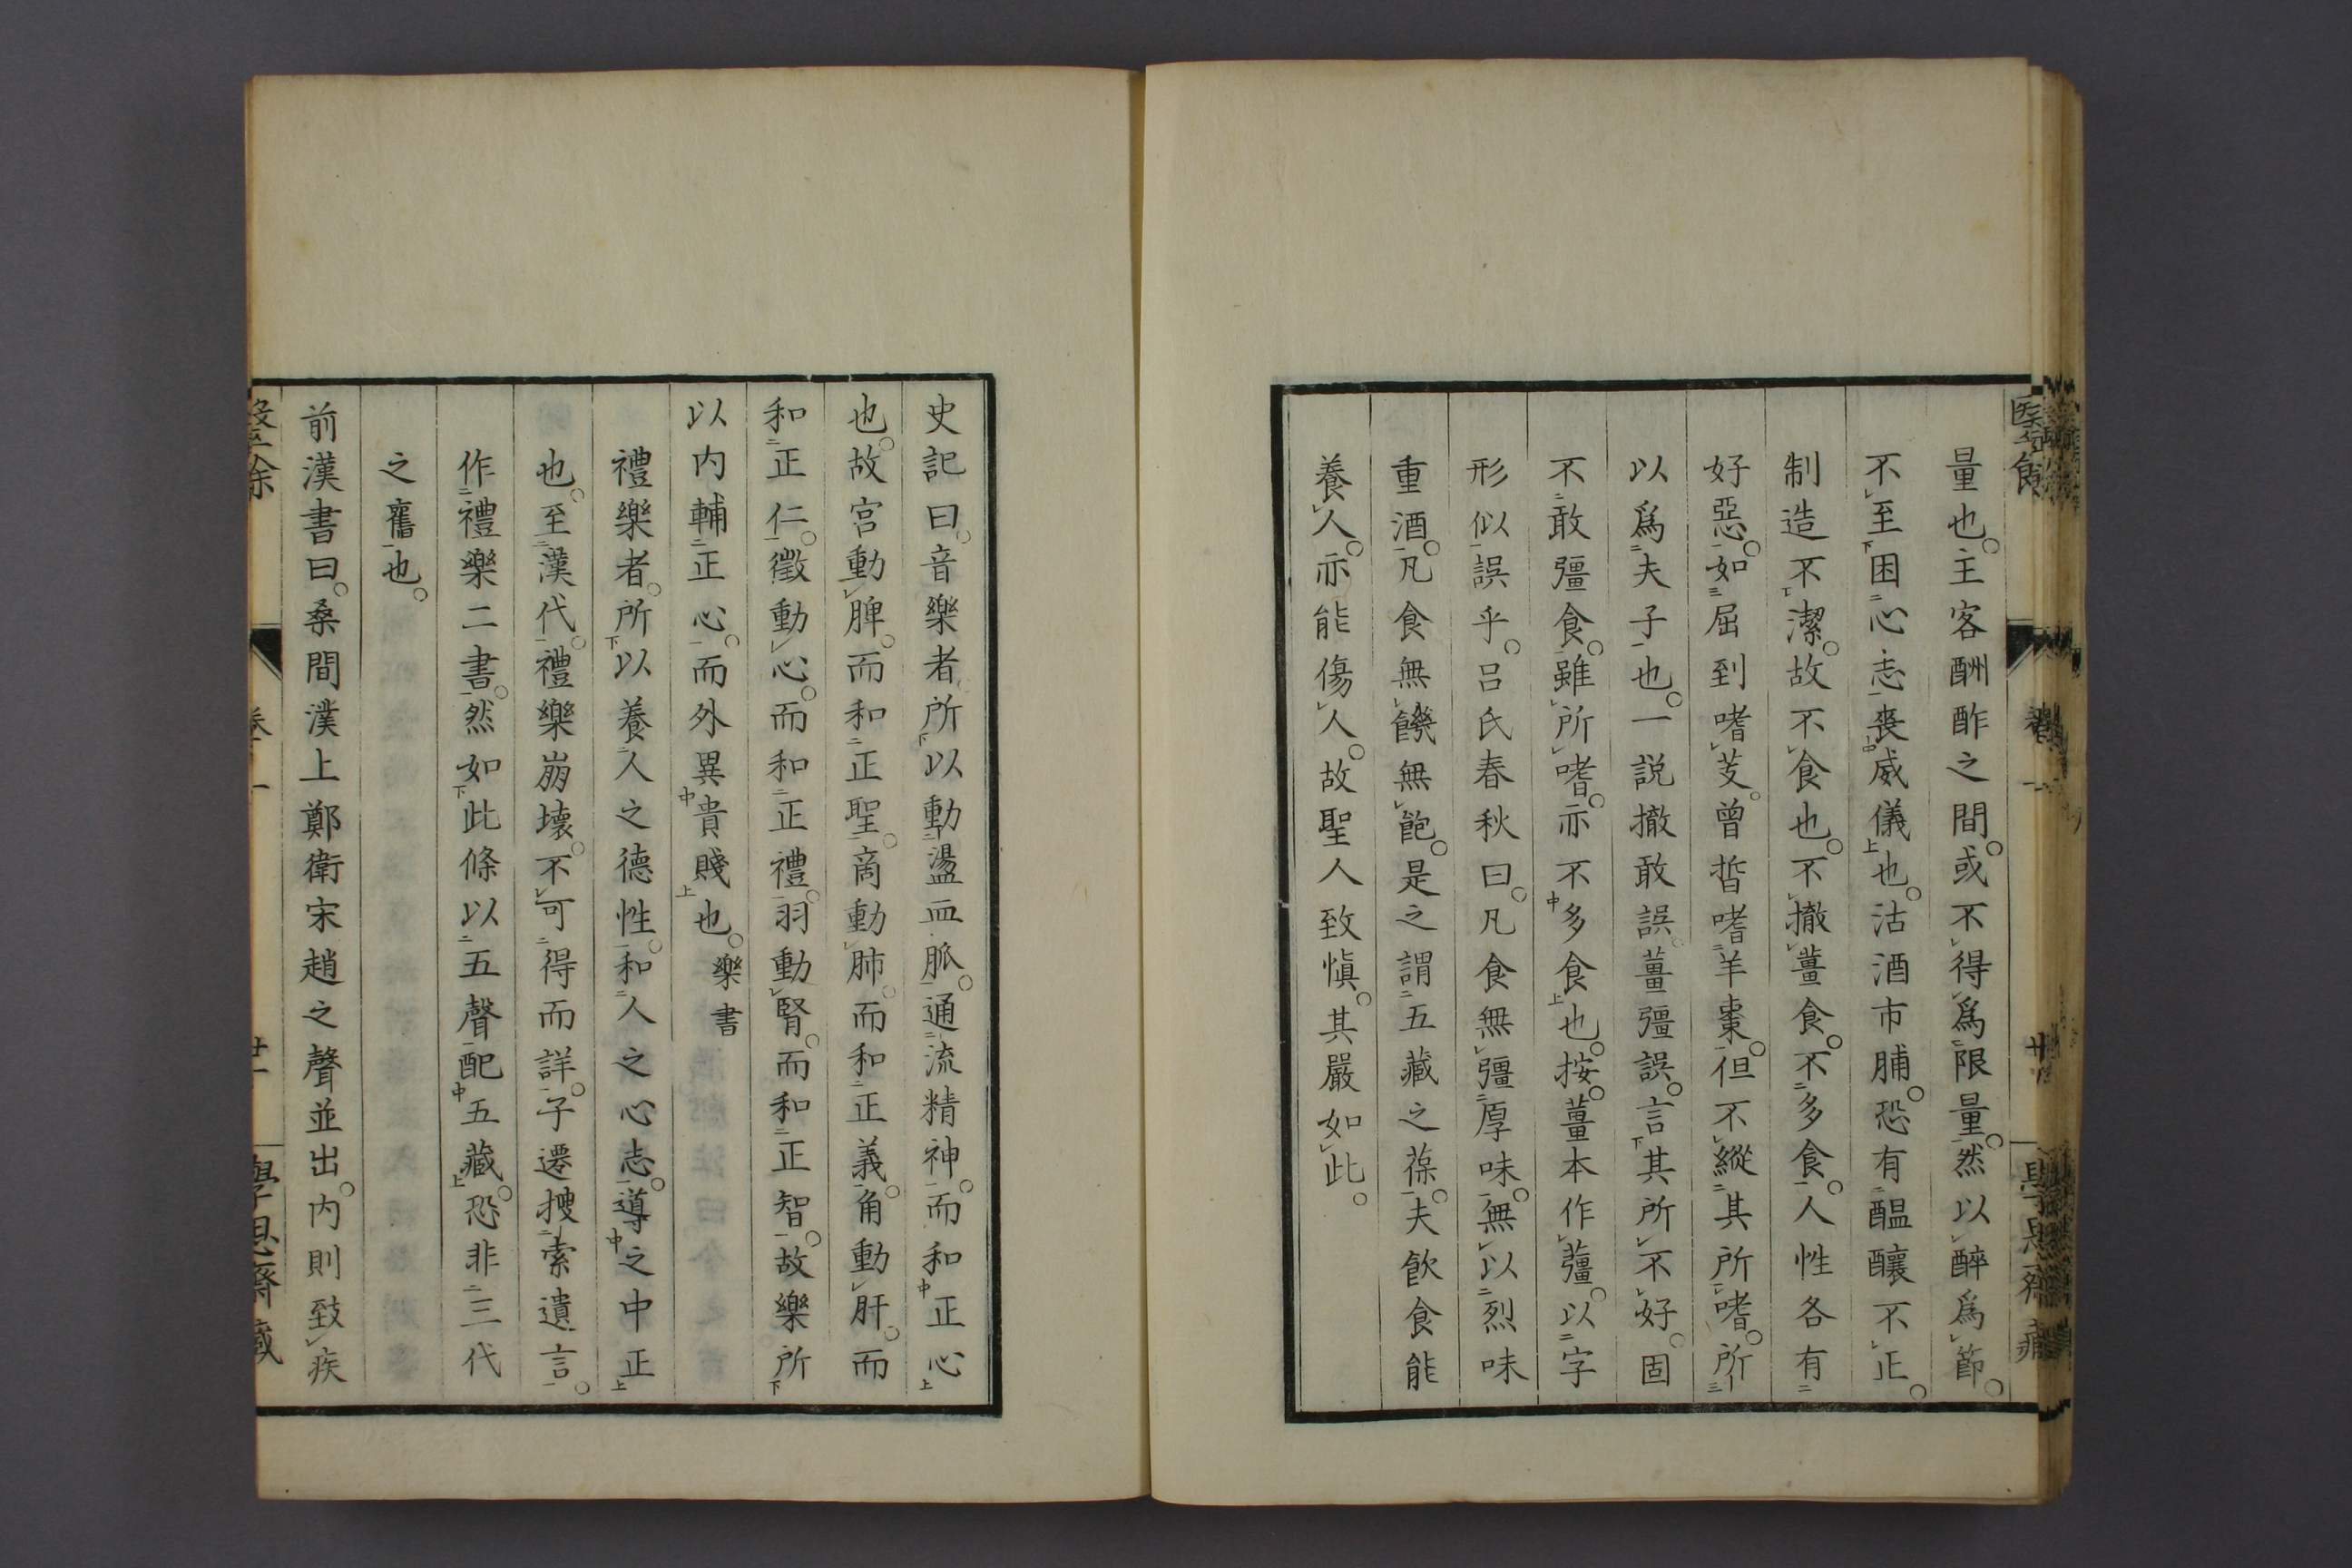 量也。主客酬酢之間。或不得爲限量。然以醉爲節。
不至困心志喪威儀也。沽酒市脯。恐有醞釀不正。
制造不潔。故不食也。不撤薑食。不多食。人性各有
好惡。如屈到嗜芰。曾晳嗜羊棗。但不縱其所嗜。所
以爲夫子也。一説撤敢誤。薑彊誤。言其所不好。固
不敢彊食。雖所嗜。亦不多食也。按。薑本作䕬。以字
形似誤乎。呂氏春秋曰。凡食無彊厚味。無以烈味
重酒。凡食無饑無飽。是之謂五藏之葆。夫飮食能
養人。亦能傷人。故聖人致愼。其嚴如此。
史記曰。音樂者所以動盪血脈。通流精神。而和正心
也。故宮動脾。而和正聖。商動肺。而和正義。角動肝。而
和正仁。徵動心。而和正禮。羽動腎。而和正智。故樂所
以内輔正心。而外異貴賤也。樂書
禮樂者。所以養人之德性。和人之心志。導之中正
也。至漢代。禮樂崩壞。不可得而詳。子遷搜索遺言。
作禮樂二書。然如此條以五聲配五藏。恐非三代
之舊也。
前漢書曰。桑間濮上鄭衛宋趙之聲並出。内則致疾